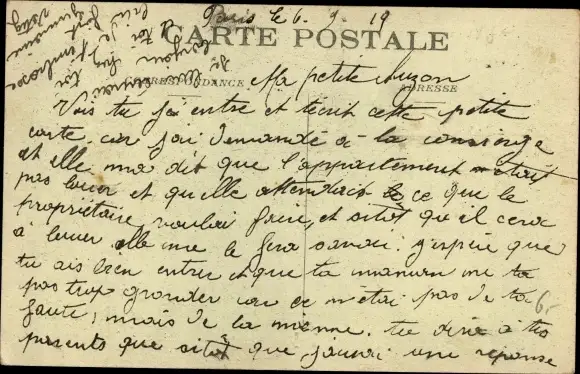 Paris le 6. 9. 19
CARTE POSTALE
CORRESPONDANCE
ADRESSE
Ma petite Suzon
Vois tu j'ai entré et t'écrit cette petite
carte car j'ai demandé à la concierge
et elle ma dit que l'appartement était
pas louer et qu'elle attendait ce que le
propriétaire voulai faire, et sitot qu'il cera
à louer elle me le fera savoir. j'espère que
tu ais bien entrer et que ta maman ne ta
pas trop gronder car ce n'étai pas de ta
faute, mais de la mienne. tu dira à tes
parents que sitôt que j'aurai une réponse
6-